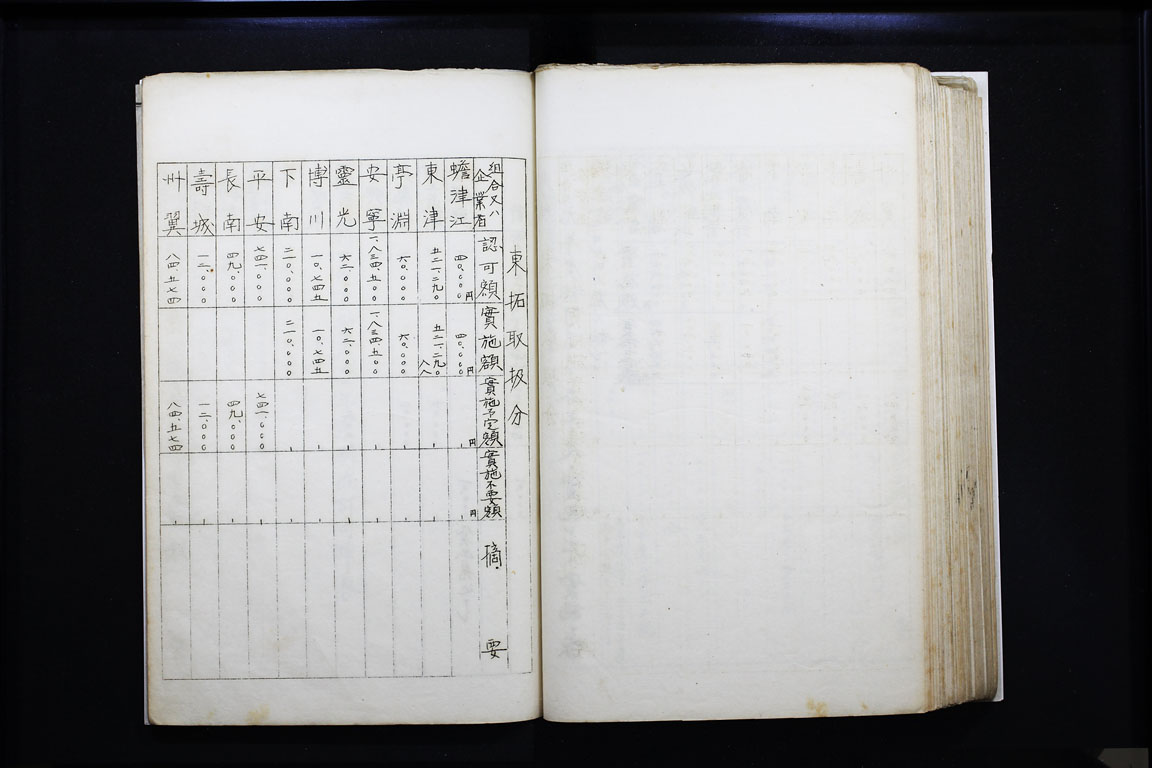 東拓取扱分
組合又ハ企業者 認可額 實施額 實施予定額 實施不要額 摘要
蟾津江 四〇.〇〇〇円 四〇.〇〇〇円 円 円
東津 五二一.二九〇 五二一.二九〇
亭淵 六〇.〇〇〇 六〇.〇〇〇
安寧 一.八三四.五〇〇 一.八三四.五〇〇
靈光 六二.〇〇〇 六二.〇〇〇
博川 一〇.七四五 一〇.七四五
下南 二一〇.〇〇〇 二一〇.〇〇〇
平安 七四一.〇〇〇 七四一.〇〇〇
長南 四九.〇〇〇 四九.〇〇〇
壽城 一二.〇〇〇 一二.〇〇〇
卅翼 八四.五七四 八四.五七四